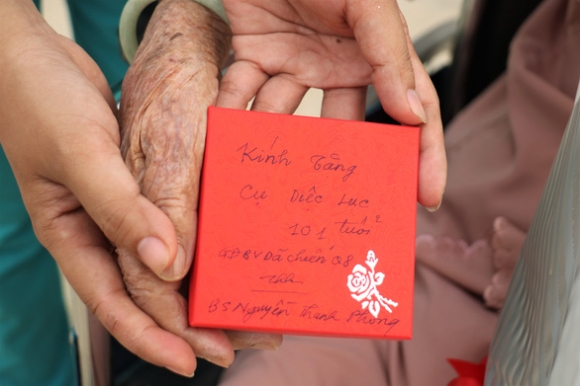 Kính Tặng
Cụ Diệc Lục
101 tuổi
GĐBV Dã chiến Q8
BS Nguyễn Thanh Phong